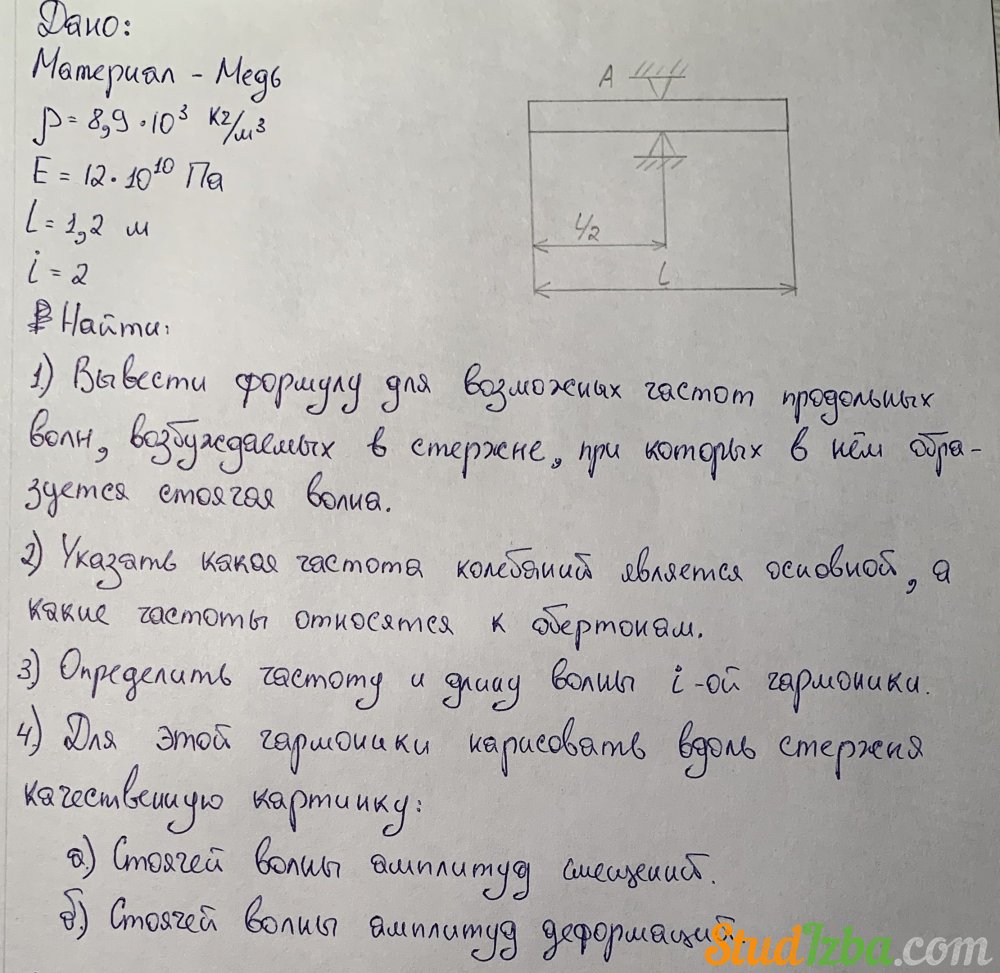 Дано:
Материал - Медь
ρ = 8,9 · 10³ кг/м³
E = 12 · 10¹⁰ Па
L = 1,2 м
i = 2
A
L/2
L
Найти:
1) Вывести формулу для возможных частот продольных
волн, возбуждаемых в стержне, при которых в нём обра-
зуется стоячая волна.
2) Указать какая частота колебаний является основной, а
какие частоты относятся к обертонам.
3) Определить частоту и длину волны i-ой гармоники.
4) Для этой гармоники нарисовать вдоль стержня
качественную картинку:
а) Стоячей волны амплитуд смещений.
б) Стоячей волны амплитуд деформаций.
StudIzba.com